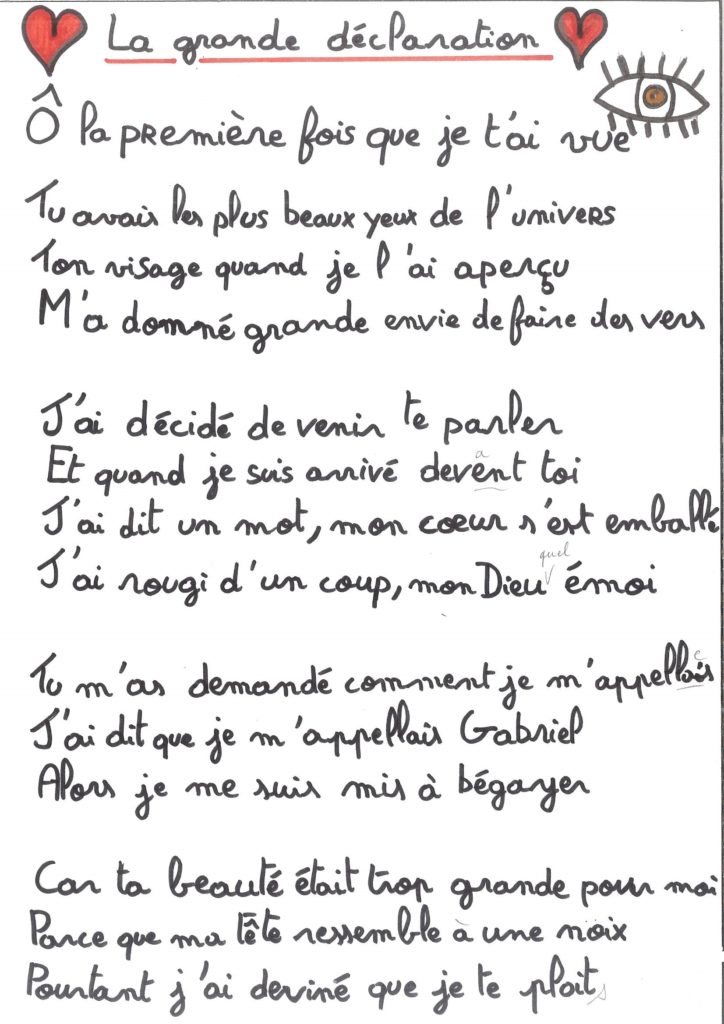 La grande déclaration
Ô la première fois que je t'ai vue
Tu avais les plus beaux yeux de l'univers
Ton visage quand je l'ai aperçu
M'a donné grande envie de faire des vers
J'ai décidé de venir te parler
a
Et quand je suis arrivé devent toi
J'ai dit un mot, mon coeur s'est emballé
quel
J'ai rougi d'un coup, mon Dieu émoi
e
Tu m'as demandé comment je m'appellais
J'ai dit que je m'appellais Gabriel
Alors je me suis mis à bégayer
Car ta beauté était trop grande pour moi
Parce que ma tête ressemble à une noix
Pourtant j'ai deviné que je te plaits